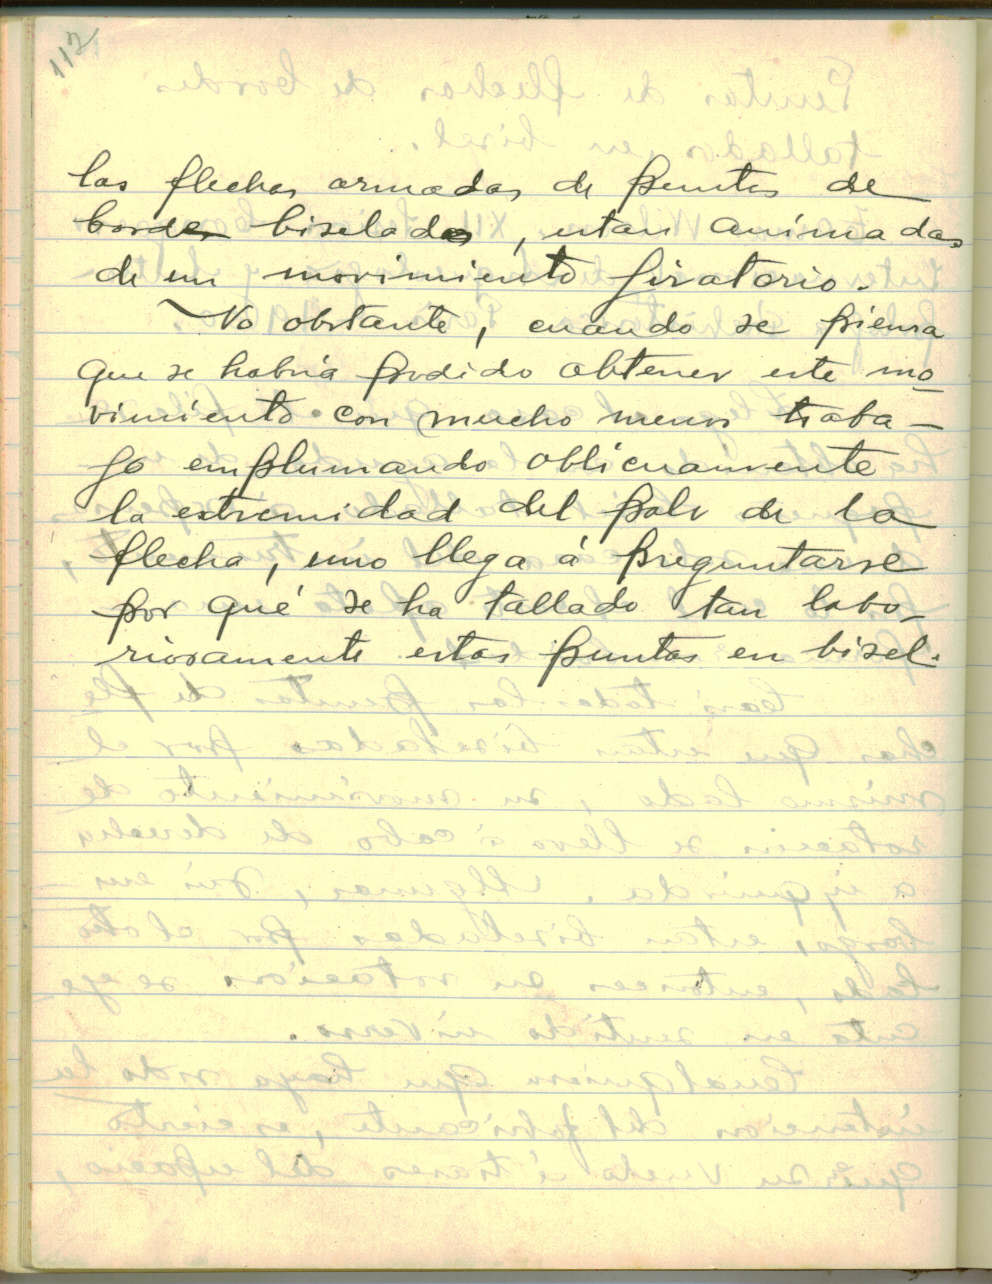 112
las flechas armadas de puntas de
bordes biselados, estan animadas
de un movimiento giratorio.
No obstante, cuando se piensa
que se habría podido obtener este mo_
vimiento con mucho menos traba_
jo emplumando oblicuamente
la estremidad del palo de la
flecha, uno llega á preguntarse
por qué se ha tallado tan labo_
riosamente estas puntas en bisel.